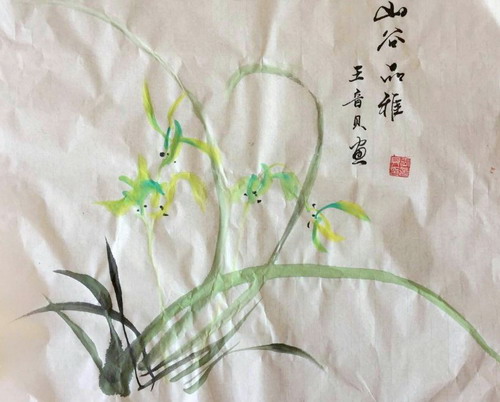 山谷品雅
王音贝画